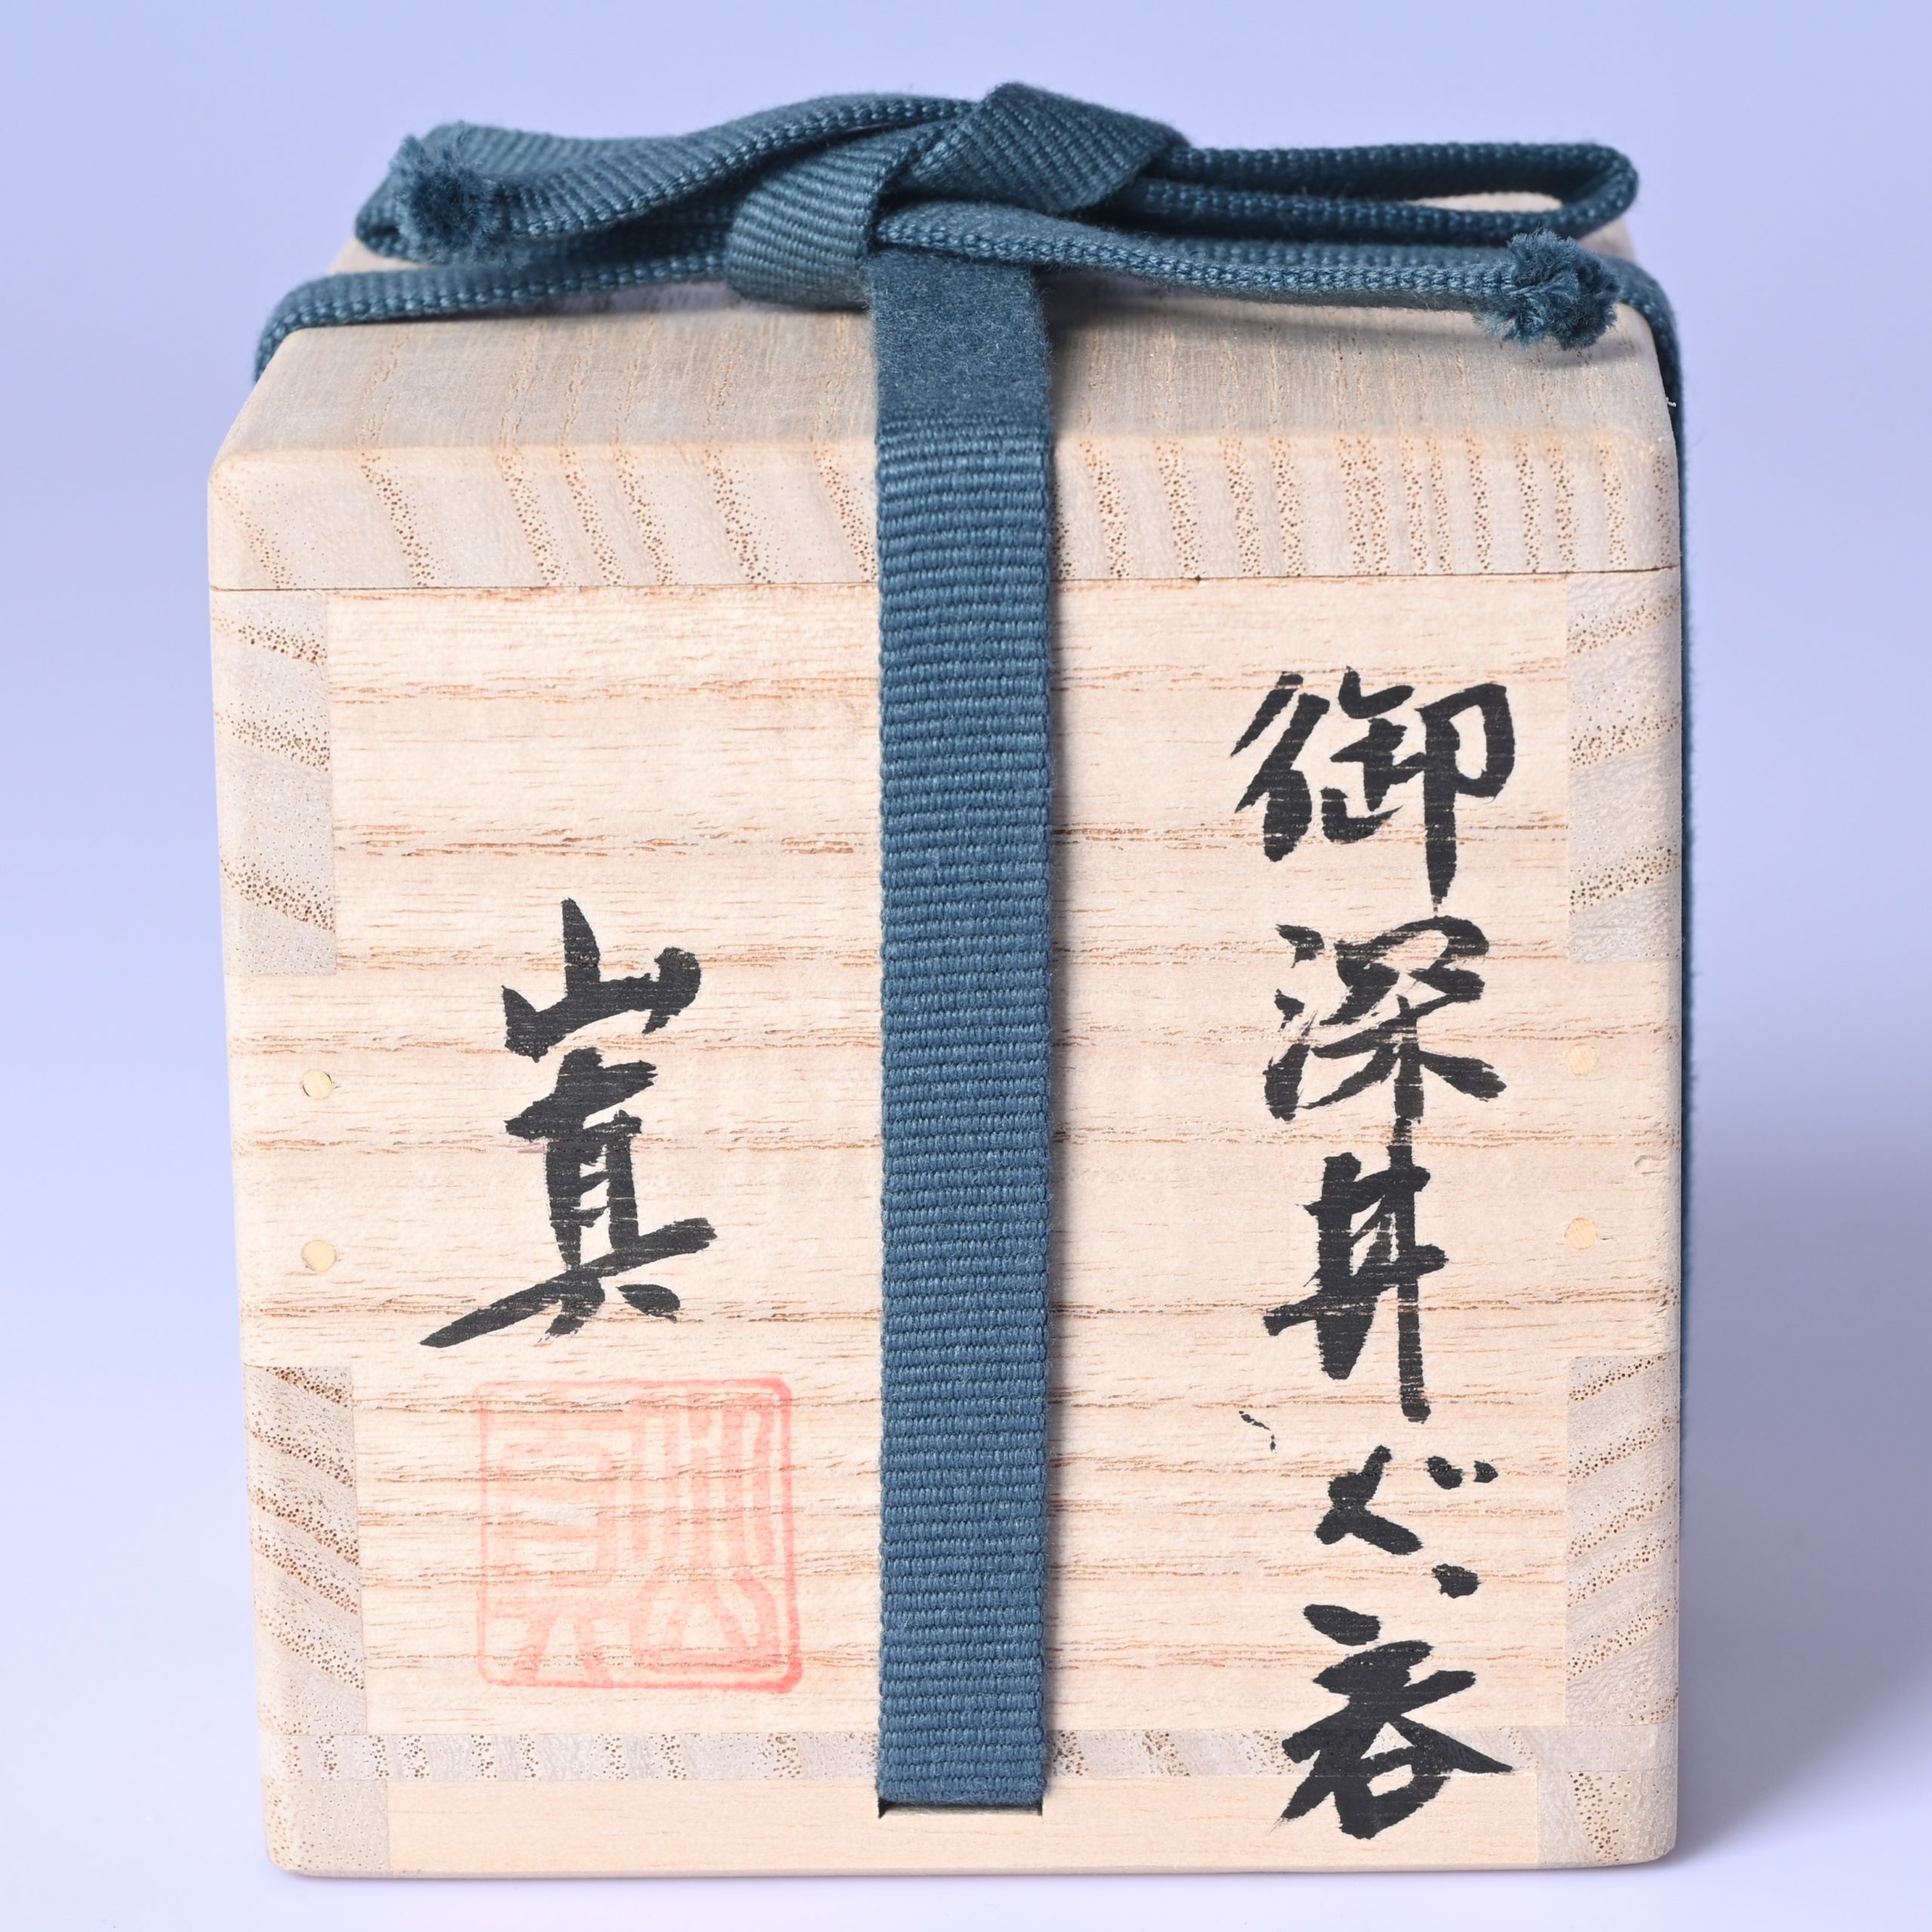 御深井ぐい呑
山真